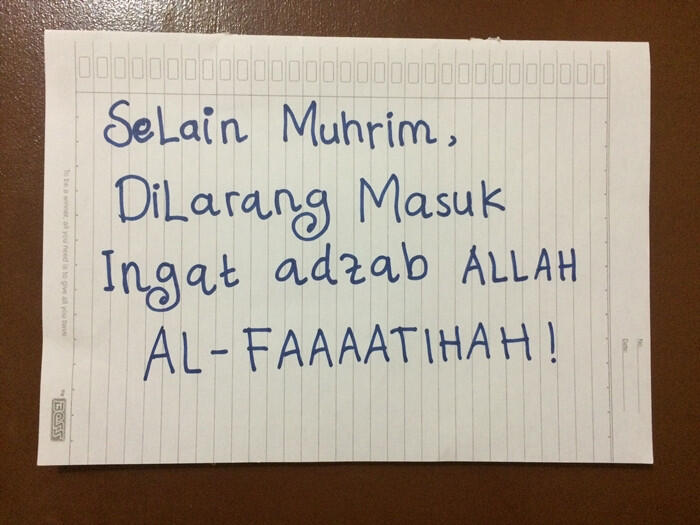 Selain Muhrim,
DiLarang Masuk
Ingat adzab ALLAH
AL-FAAAATIHAH!
To be a winner, all you need is to give all you have
No.
Date.